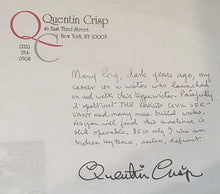 Quentin Crisp
46 East Third Street
New York, NY 10003
(212)
254-
0508
Many long, dark years ago, my
career as a writer was launched
on and with this typewriter. Painfully
it spelt out THE NAKED CIVIL SER-
VANT and many more buried works.
As you will find this machine is
still operable. It is only I who am
useless
Quentin Crisp